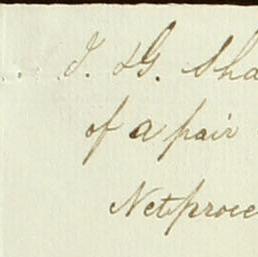 J. & G. Sha
of a pair
Netproce